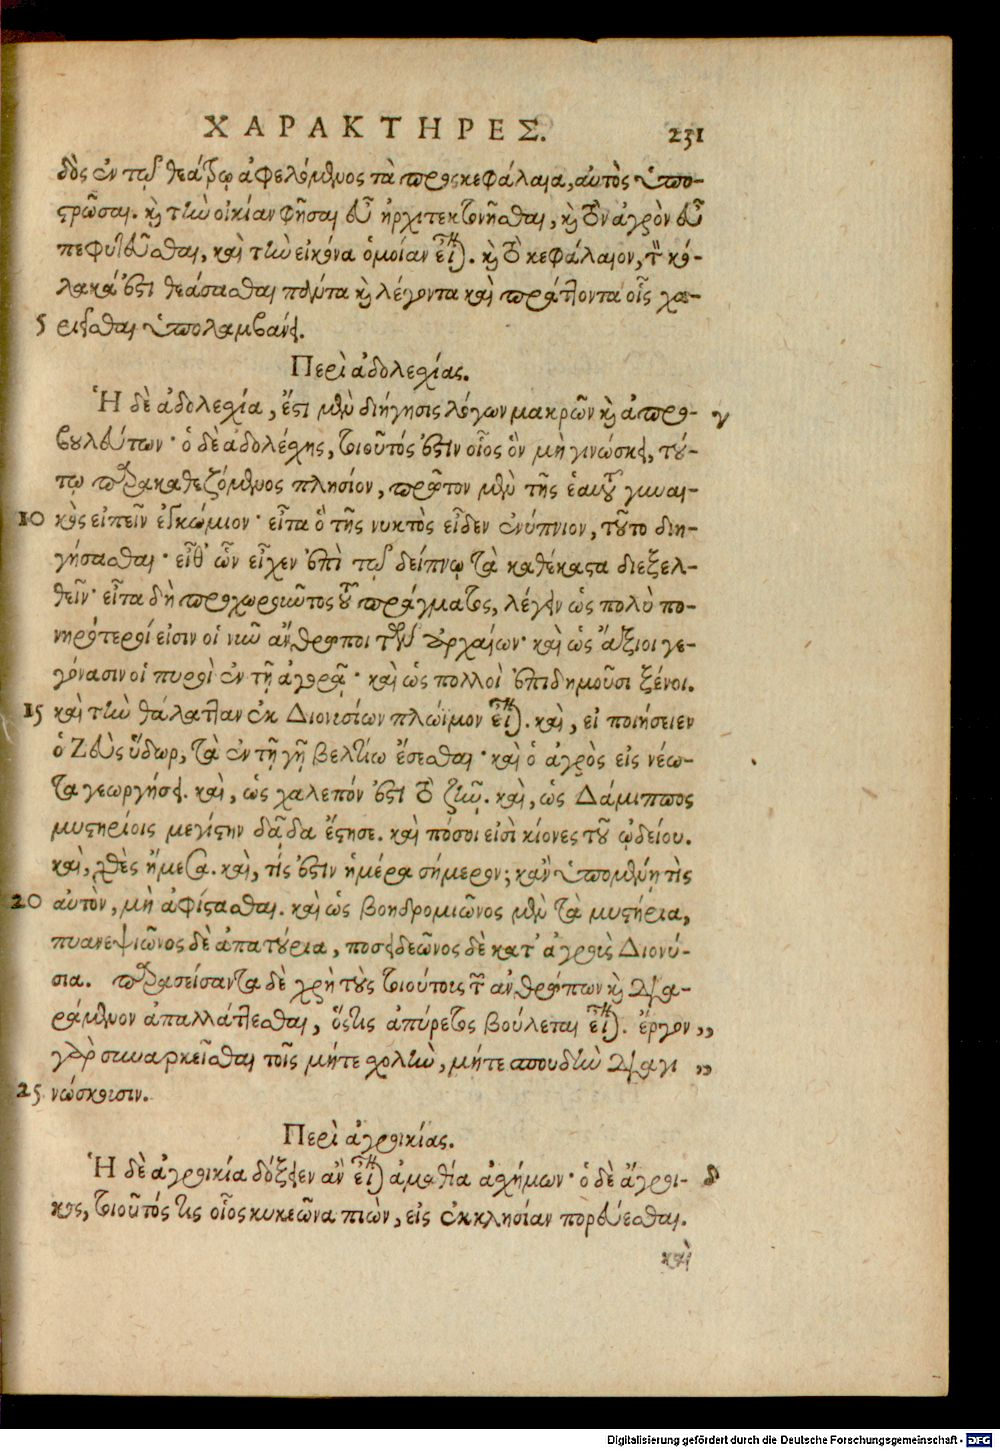 ΧΑΡΑΚΤΗΡΕΣ. 231
δὸς ἐν τῷ θεάτρῳ ἀφελόμενος τὰ προσκεφάλαια, αὐτὸς ὑπο-
στρῶσαι. καὶ τὴν οἰκίαν φῆσαι εὖ ἠρχιτεκτονῆσθαι, καὶ τὸν ἀγρὸν εὖ
πεφυτεῦσθαι, καὶ τὴν εἰκόνα ὁμοίαν εἶναι. καὶ τὸ κεφάλαιον, τὸν κό-
λακά ἐστι θεάσασθαι πάντα καὶ λέγοντα καὶ πράττοντα οἷς χα-
5 ριεῖσθαι ὑπολαμβάνει.
Περὶ ἀδολεσχίας.
Ἡ δὲ ἀδολεσχία, ἔστι μὲν διήγησις λόγων μακρῶν καὶ ἀπρο- γ
βουλεύτων· ὁ δὲ ἀδολέσχης, τοιοῦτός ἐστιν οἷος ὃν μὴ γινώσκει, τού-
τῳ παρακαθεζόμενος πλησίον, πρῶτον μὲν τῆς ἑαυτοῦ γυναι-
10 κὸς εἰπεῖν ἐγκώμιον· εἶτα ὃ τῆς νυκτὸς εἶδεν ἐνύπνιον, τοῦτο διη-
γήσασθαι· εἶθ' ὧν εἶχεν ἐπὶ τῷ δείπνῳ τὰ καθέκαστα διεξελ-
θεῖν· εἶτα δὴ προχωροῦντος τοῦ πράγματος, λέγειν ὡς πολὺ πο-
νηρότεροί εἰσιν οἱ νῦν ἄνθρωποι τῶν ἀρχαίων· καὶ ὡς ἄξιοι γε-
γόνασιν οἱ πυροὶ ἐν τῇ ἀγορᾷ· καὶ ὡς πολλοὶ ἐπιδημοῦσι ξένοι.
15 καὶ τὴν θάλατταν ἐκ Διονυσίων πλώϊμον εἶναι. καὶ, εἰ ποιήσειεν
ὁ Ζεὺς ὕδωρ, τὰ ἐν τῇ γῇ βελτίω ἔσεσθαι· καὶ ὁ ἀγρὸς εἰς νέω-
τα γεωργήσει. καὶ, ὡς χαλεπόν ἐστι τὸ ζῆν. καὶ, ὡς Δάμιππος
μυστηρίοις μεγίστην δᾷδα ἔστησε. καὶ πόσοι εἰσὶ κίονες τοῦ ᾠδείου.
καὶ, χθὲς ἤμεσα. καὶ, τίς ἐστιν ἡμέρα σήμερον; κἂν ὑπομένῃ τὶς
20 αὐτὸν, μὴ ἀφίστασθαι. καὶ ὡς βοηδρομιῶνος μὲν τὰ μυστήρια,
πυανεψιῶνος δὲ ἀπατούρια, ποσειδεῶνος δὲ κατ' ἀγροὺς Διονύ-
σια. παρασείσαντα δὲ χρὴ τοὺς τοιούτους τῶν ἀνθρώπων καὶ διαρα-
ράμενον ἀπαλλάττεσθαι, ὅστις ἀπύρετος βούλεται εἶναι. ἔργον „
γὰρ συναρκεῖσθαι τοῖς μήτε σχολὴν, μήτε σπουδὴν διαγι „
25 νώσκουσιν.
Περὶ ἀγροικίας.
Ἡ δὲ ἀγροικία δόξειεν ἂν εἶναι ἀμαθία ἀσχήμων· ὁ δὲ ἄγροι- δ
κος, τοιοῦτός τις οἷος κυκεῶνα πιὼν, εἰς ἐκκλησίαν πορεύεσθαι.
καὶ
Digitalisierung gefördert durch die Deutsche Forschungsgemeinschaft - DFG